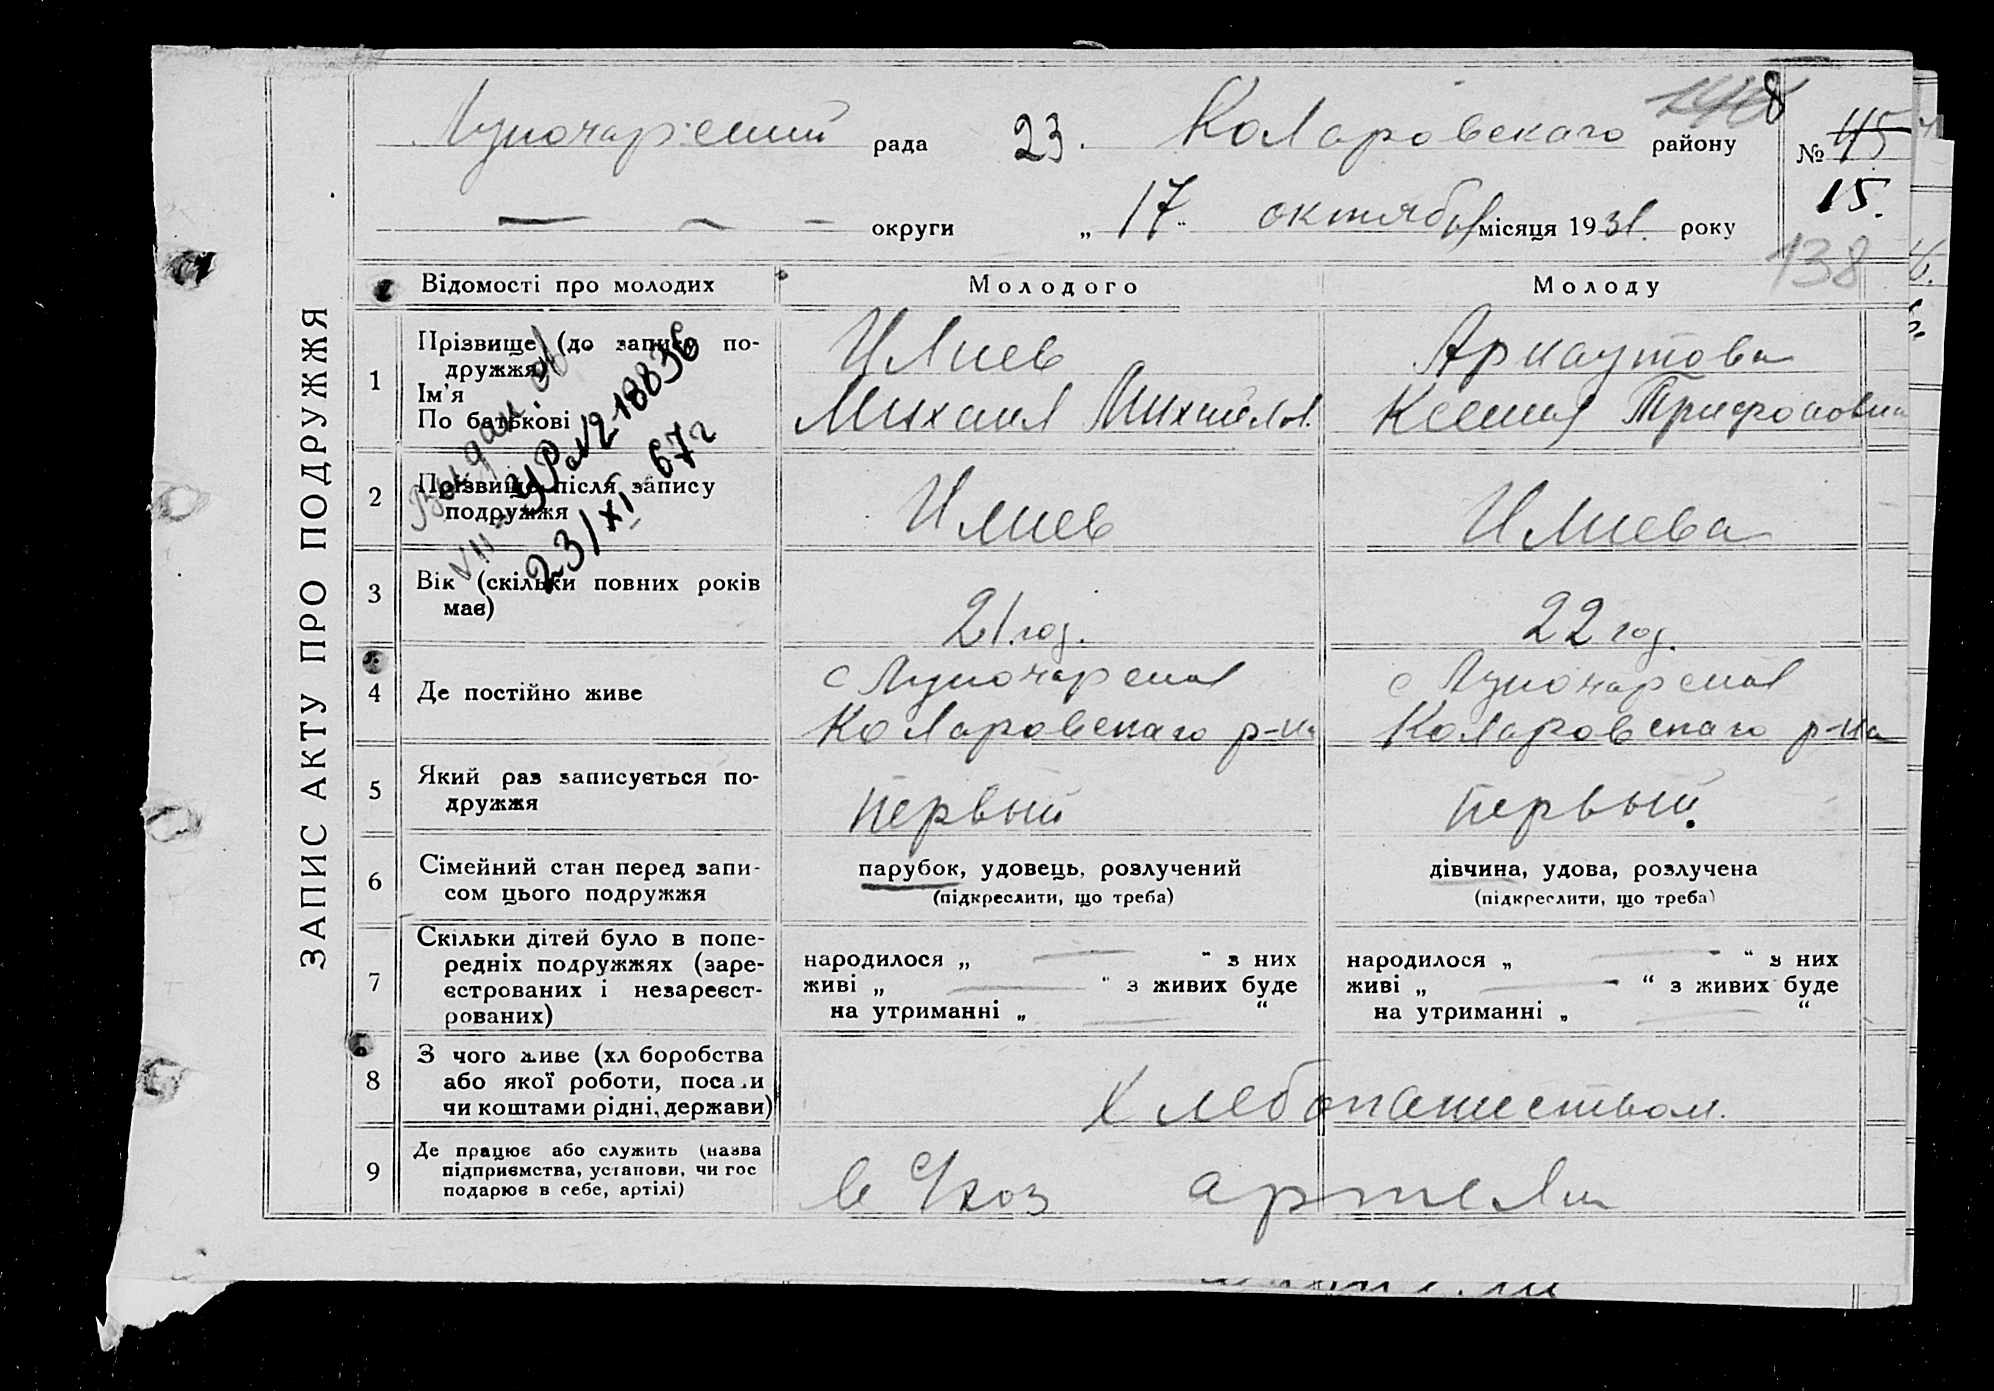 ЗАПИС АКТУ ПРО ПОДРУЖЖЯ
Луночарский рада 23. Коларовскаго району № 45
15.
— — — округи „ 17 " октября місяця 1931. року
138
Відомості про молодих Молодого Молоду
1 Прізвище (до запису по-
дружжя)
Ім'я
По батькові
Илиев
Михаил Михайлов.
Арнаутова
Ксения Трифоновна
Выдан.
VII-УР №218836
23/XI-67г
2 Прізвище після запису
подружжя
Илиев Илиева
3 Вік (скільки повних років
має)
21 год. 22 год.
4 Де постійно живе
с Луночарскал
Коларовскаго р-на
с Луночарскал
Коларовскаго р-на
5 Який раз записується по-
дружжя
первый первый.
6 Сімейний стан перед запи-
сом цього подружжя
парубок, удовець, розлучений
(підкреслити, що треба)
дівчина, удова, розлучена
(підкреслити, що треба)
7 Скільки дітей було в попе-
редніх подружжях (заре-
єстрованих і незареєст-
рованих)
народилося „ — “ з них
живі „ — “ з живих буде
на утриманні „ — “
народилося „ — “ з них
живі „ — “ з живих буде
на утриманні „ — “
8 З чого живе (хл боробства
або якої роботи, посади
чи коштами рідні, держави)
Хлебопашеством.
9 Де працює або служить (назва
підприємства, установи, чи гос
подарює в себе, артілі)
в С/хоз артели